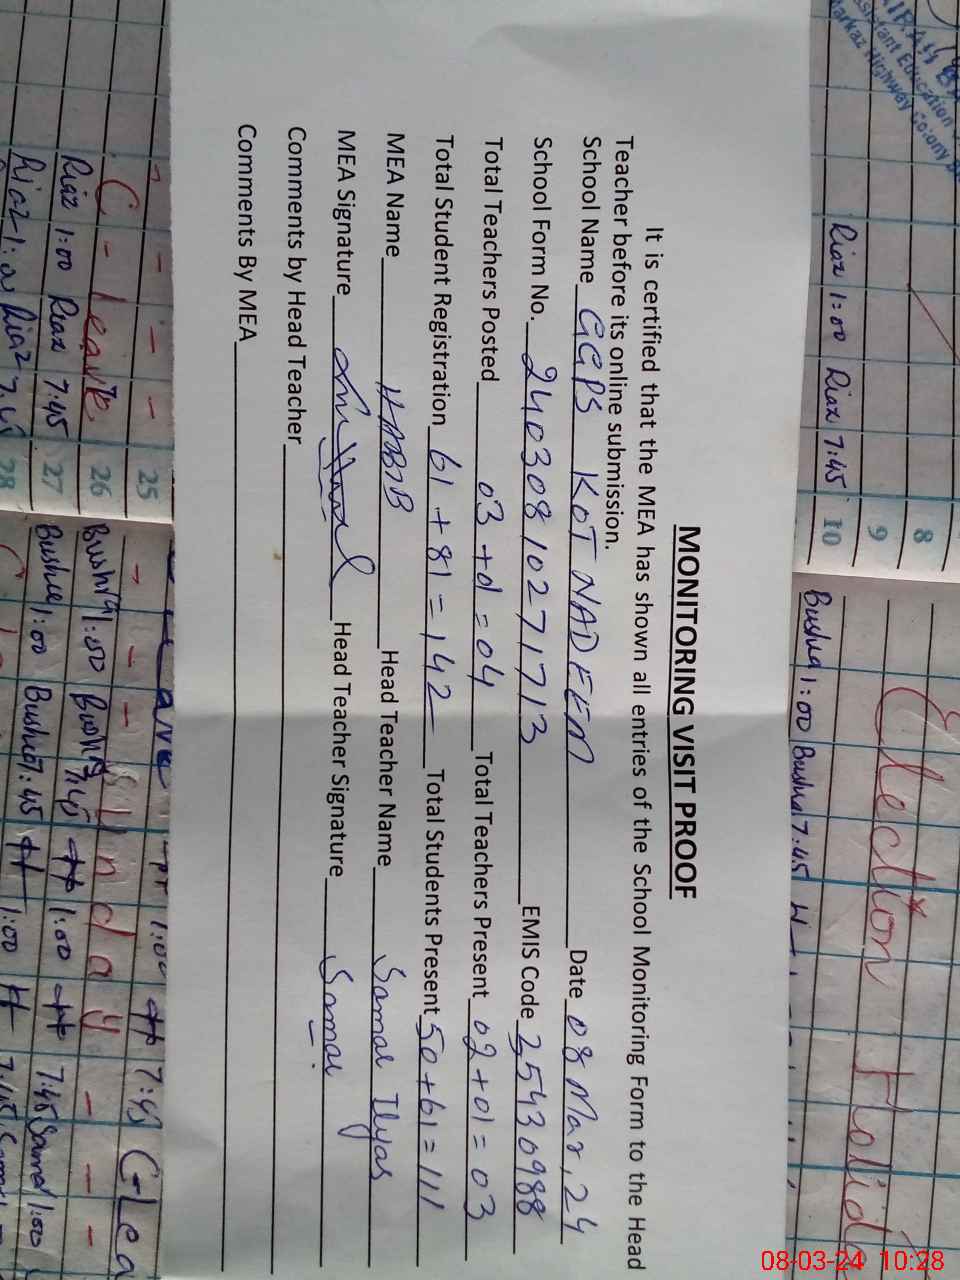 MONITORING VISIT PROOF
It is certified that the MEA has shown all entries of the School Monitoring Form to the Head
Teacher before its online submission.
School Name GGPS KOT NADEEM Date 08 Mar, 24
School Form No. 24030810271713 EMIS Code 25430988
Total Teachers Posted 03 + 01 = 04 Total Teachers Present 02 + 01 = 03
Total Student Registration 61 + 81 = 142 Total Students Present 50 + 61 = 111
MEA Name HABIB Head Teacher Name Samal Ilyas
MEA Signature Head Teacher Signature Samal
Comments by Head Teacher
Comments By MEA
8
9
10
Riaz 1:00 Riaz 7:45
Bushra 1:00 Bushra 7:45
Election Holida
25
26
27
28
C - Leave
Riaz 1:00 Riaz 7:45
Sunday
Bushra 1:00 Bushra 7:45 1:00 7:45 Samal 1:00
C-Lea
08-03-24 10:28